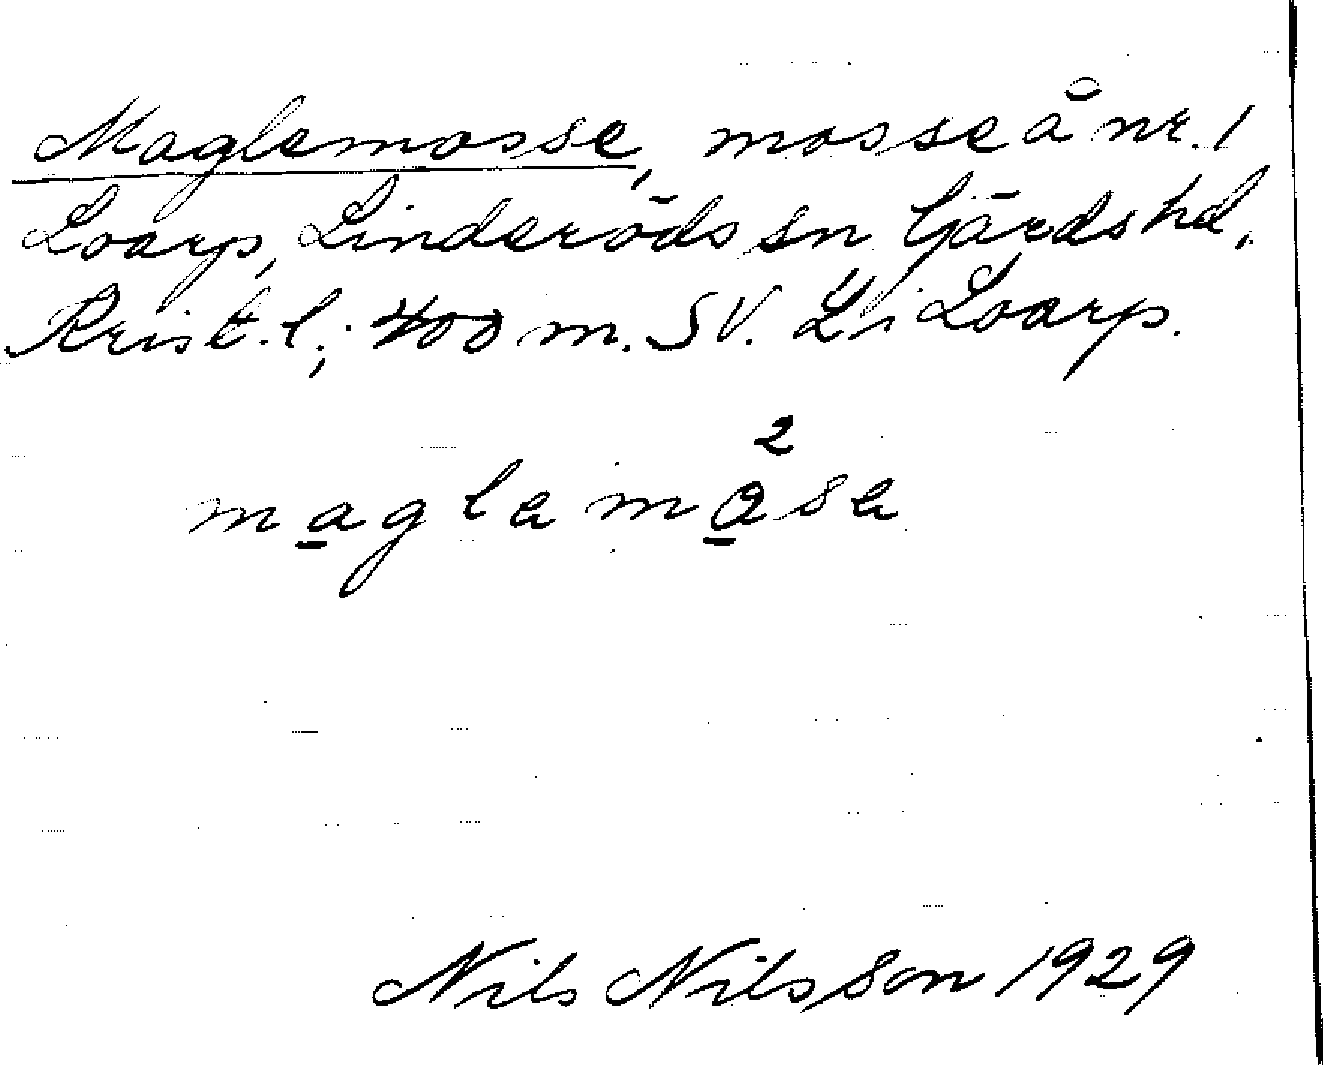 Maglemosse, mosse å nr. 1
Loarp, Linderöds sn Gärds hd,
Krist. l.; 400 m. SV. Li Loarp.
2
magla måsa
Nils Nilsson 1929